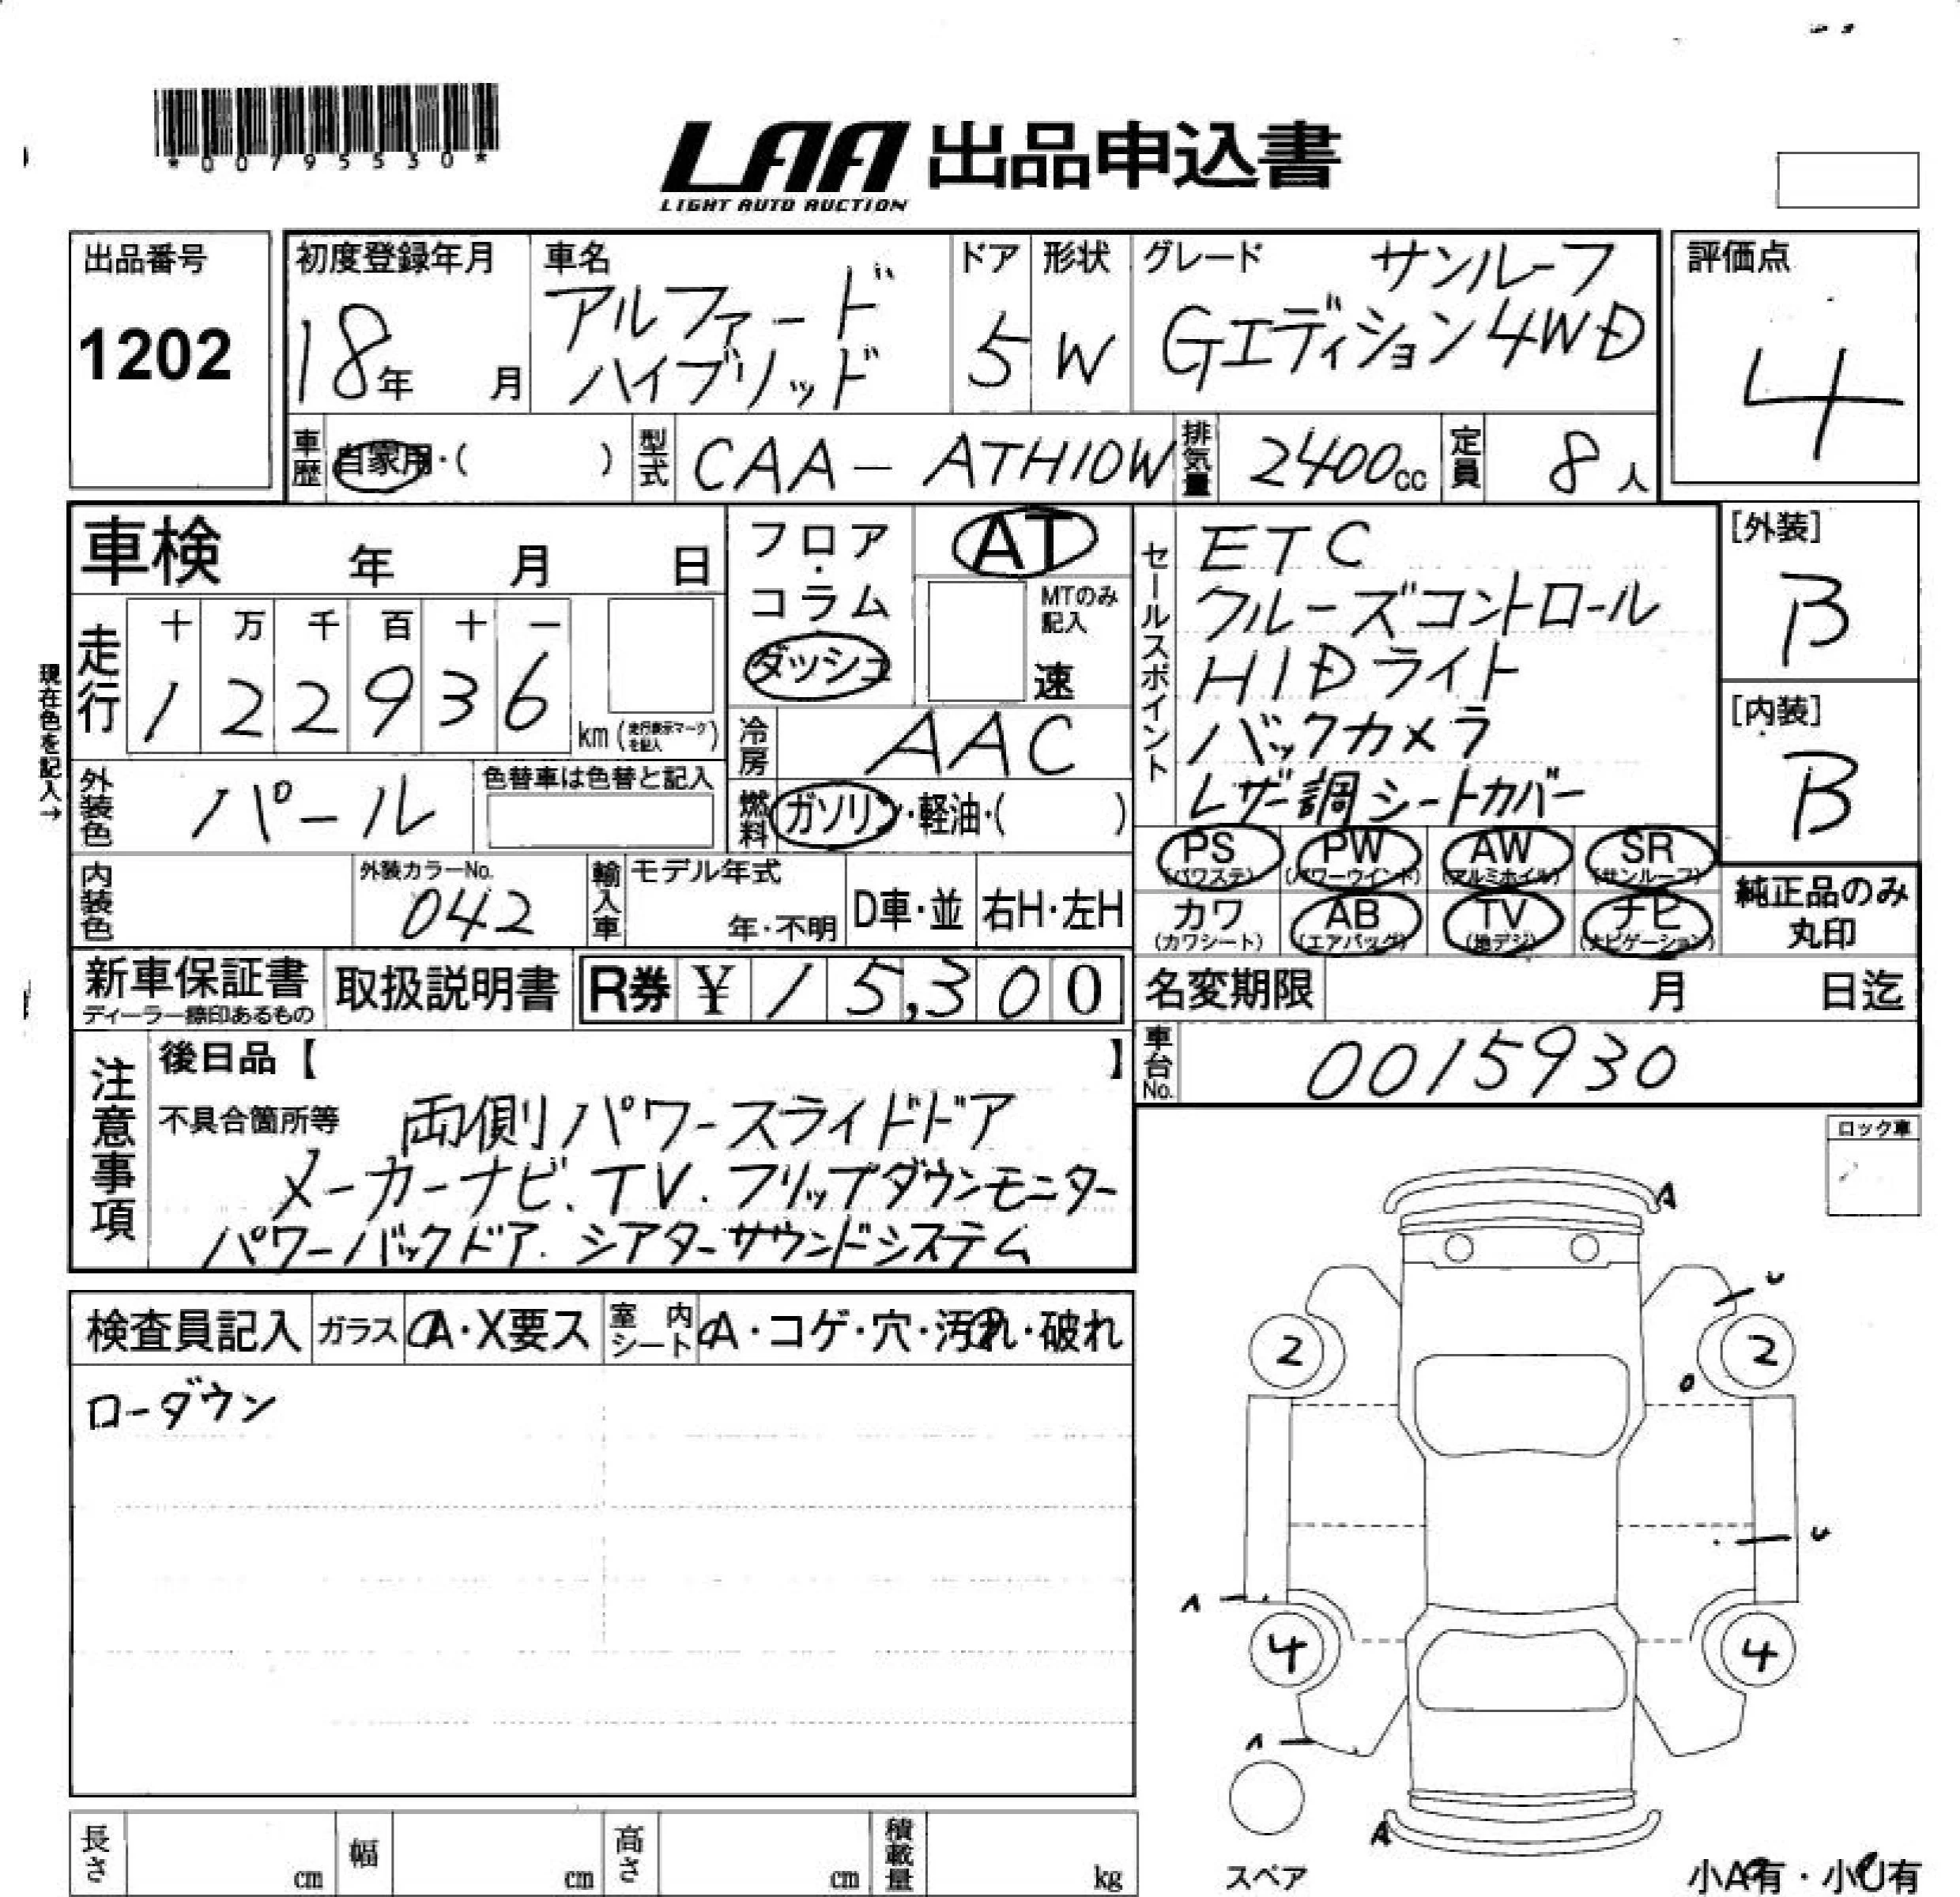 *00795530*
LAA 出品申込書
LIGHT AUTO AUCTION
出品番号
1202
初度登録年月
18年 月
車名
アルファード
ハイブリッド
ドア
5
形状
W
グレード サンルーフ
Gエディション4WD
評価点
4
車歴 自家用・( )
型式 CAA-ATH10W
排気量 2400cc
定員 8人
車検 年 月 日
現在色を記入→
走行 十 万 千 百 十 一
1 2 2 9 3 6 km(走行表示マークを記入)
フロア・
コラム
ダッシュ
AT
MTのみ
記入
速
冷房 AAC
燃料 ガソリン・軽油・( )
外装色 パール
色替車は色替と記入
内装色
外装カラーNo.
042
輸入車 モデル年式
年・不明
D車・並 右H・左H
セールスポイント
ETC
クルーズコントロール
HIDライト
バックカメラ
レザー調シートカバー
[外装]
B
[内装]
B
PS PW AW SR
(パワステ) (パワーウインド) (アルミホイル) (サンルーフ)
カワ AB TV ナビ
(カワシート) (エアバッグ) (地デジ) (ナビゲーション)
純正品のみ
丸印
新車保証書
ディーラー捺印あるもの
取扱説明書
R券 ¥ 15,300
名変期限 月 日迄
車台No. 0015930
注意事項
後日品【 】
不具合箇所等 両側パワースライドドア
メーカーナビ.TV.フリップダウンモニター
パワーバックドア.シアターサウンドシステム
ロック車
検査員記入 ガラス A・X要ス 室内シート A・コゲ・穴・汚れ・破れ
ローダウン
A
U
2 2
U
A
4 4
A
A
スペア
小A有・小U有
長さ cm 幅 cm 高さ cm 積載量 kg